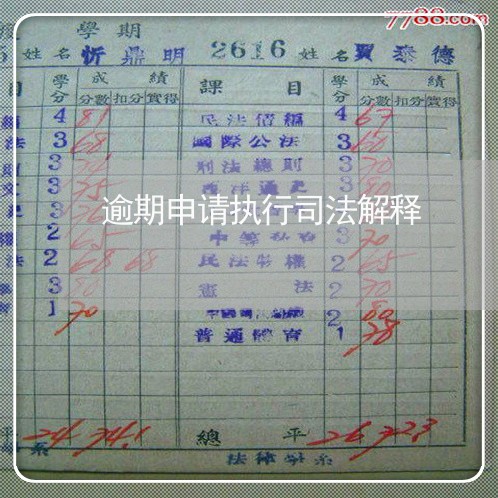 7788.com
學期
姓名 忻鼎明 2616 姓名 賈泰德
目 學分 成績 課目 學分 成績
分數 扣分 實得 分數 扣分 實得
4 81 民法債編 4 67
法 3 68 國際公法 3 60
3 刑法總則 3 70
3 75 西洋通史 3 80
逾期申请执行司法解释
2 65 3 70
法 2 68 68 民法物權 2 65
3 80 憲法 2 70
1 70 2 80
普通體育 1 78
平 24 74.1 總平 26 72.3
系 法律學系